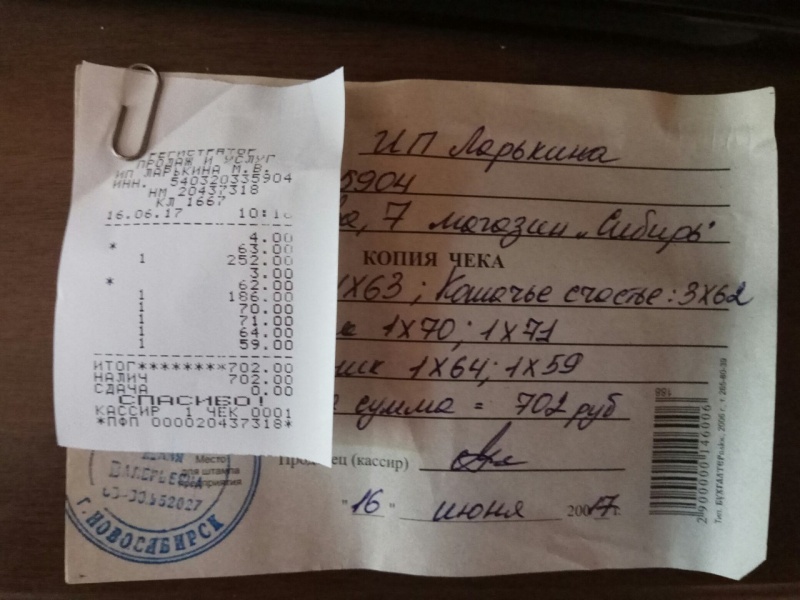 РЕГИСТРАТОР
ПРОДАЖ И УСЛУГ
ИП ЛАРЬКИНА М.В.
ИНН. 540320335904
НМ 20437318
КЛ 1667
16.06.17 10:16
4.00
* 63.00
1 252.00
3.00
* 62.00
1 186.00
1 70.00
1 71.00
1 64.00
1 59.00
ИТОГ********702.00
НАЛИЧ 702.00
СДАЧА 0.00
СПАСИБО!
КАССИР 1 ЧЕК 0001
*ПФП 000020437318*
ИП Ларькина
5904
7 магазин "Сибирь"
КОПИЯ ЧЕКА
1х63; Кошачье счастье: 3х62
1х70; 1х71
1х64; 1х59
сумма = 702 руб
(кассир)
"16" июня 2017 г.
Место
для штампа
предприятия
г. НОВОСИБИРСК
188
2900000146006
Тип. БУХГАЛТЕРsoin, 2006 г., т. 265-80-39